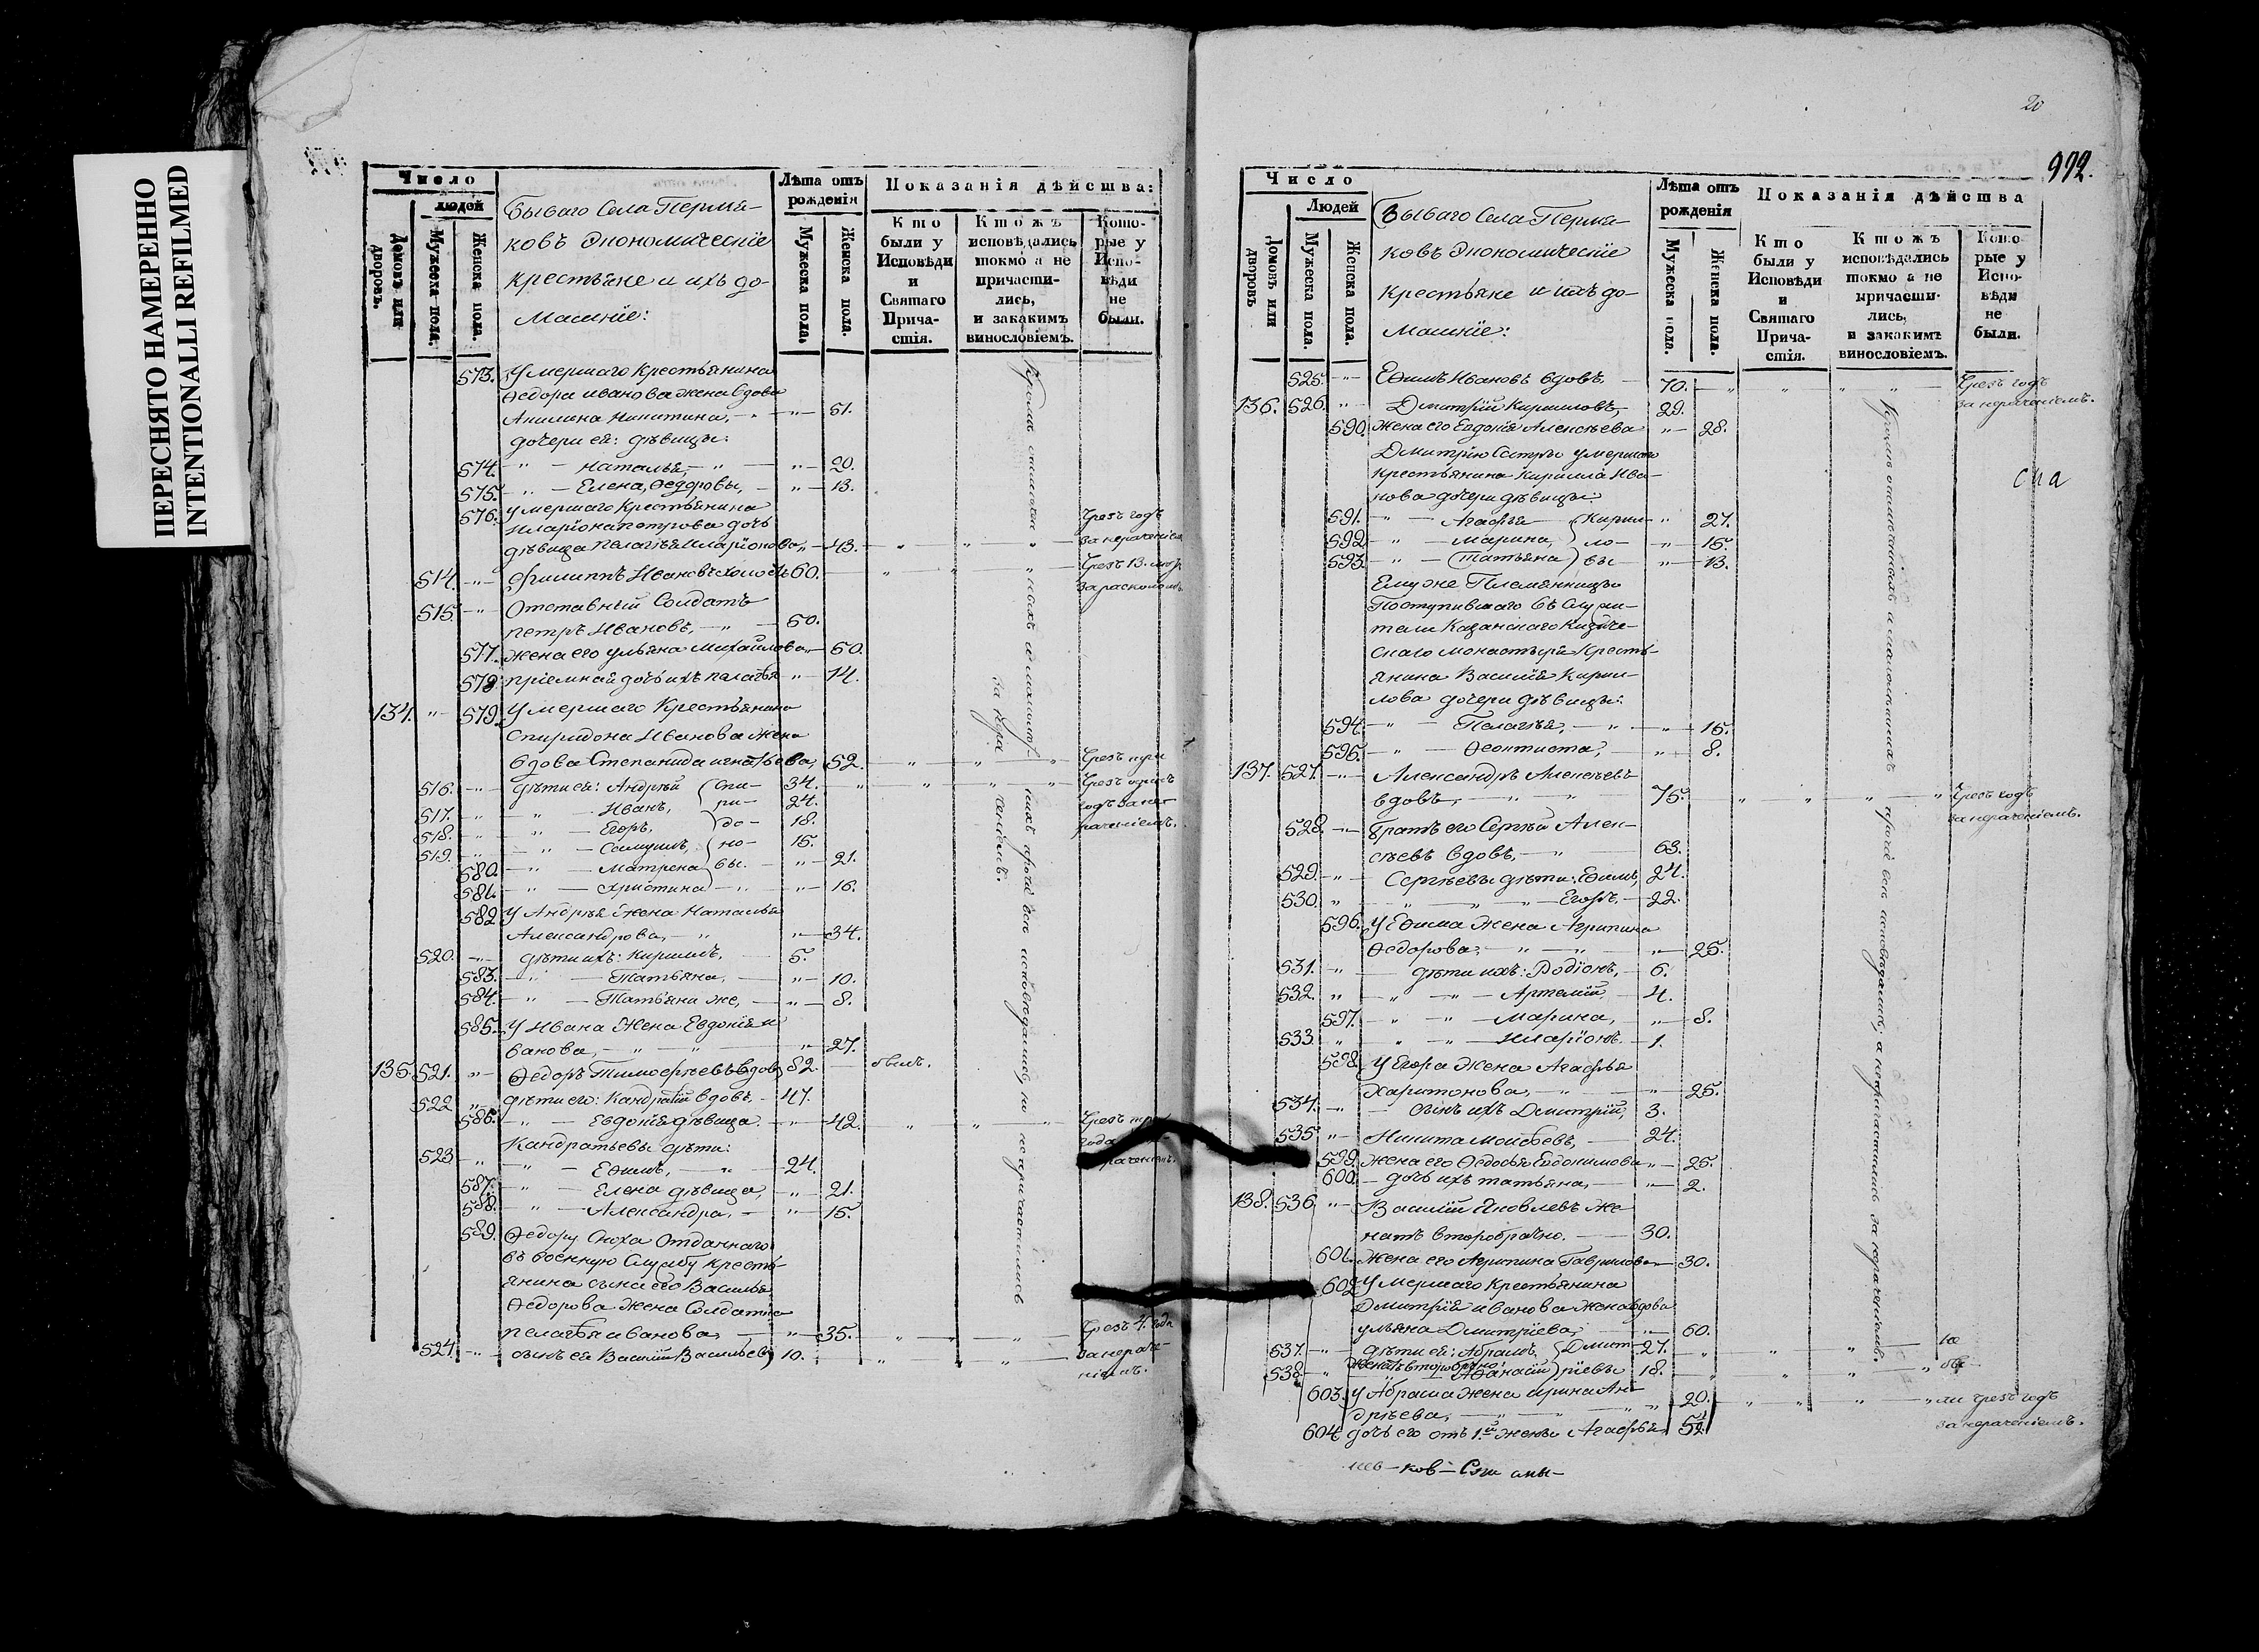 ПЕРЕСНЯТО НАМЕРЕННО
INTENTIONALLI REFILMED
Число
людей
Домовъ или дворовъ.
Мужеска пола.
Женска пола.
Бываго Села Пермя-
ковъ Экономическїе
крестьяне и ихъ до-
машнїе:
Лѣта отъ рожденія
Мужеска пола.
Женска пола.
Показанія дѣйства:
Кто были у Исповѣди и Святаго Прича-стія.
Ктожъ исповѣдались токмо а не причасти-лись, и закакимъ винословіемъ.
Кото-рые у Испо-вѣди не были.
573. Умершаго крестьянина
Ѳедора иванова жена вдова
Акилина Никитина, 51.
дочери ей: дѣвицы:
574. Наталья, 20.
575. Елена, Ѳедоровы, 13.
576. умершаго Крестьянина
Иларїона петрова дочь
дѣвица Пелагея Иларїонова 43. Чрезъ годъ за нераченіемъ
514. Филиппъ Ивановъ 60. Чрезъ 13. за расколомъ
515. Отставный Солдатъ
петръ Ивановъ, 60.
577. жена его ульяна Михайлова 50.
578. прїемная дочь ихъ палагья 14.
134. 579. Умершаго Крестьянина
Спиридона Иванова жена
вдова Степанида игнатьева, 52. Чрезъ три
516. дѣти ей: Андрей Спи- 34. Чрезъ одинъ
517. Иванъ, ри- 24. годъ за не-
518. Егоръ, до- 18. раченіемъ.
519. Самуилъ, но- 15.
580. Матрена вы. 21.
581. Христина 16.
582. У Андрея жена Наталья
Александрова, 34.
520. дѣти ихъ: Кирилъ, 5.
583. Татьяна, 10.
584. Татьяна же, 8.
585. У Ивана жена Евдокїя и
ванова, 27.
135. 521. Ѳедоръ Тимофеевъ вдовъ 82. былъ.
522. дѣти его: Кандратїй вдовъ, 47.
586. Евдокїя дѣвица 42. Чрезъ три года
Кандратьевы дѣти:
523. Ефимъ, 24.
587. Елена дѣвица, 21.
588. Александра. 15.
589. Ѳедору Сноха Отданнаго
въ военную Службу кресть-
янина сына его Василья
Ѳедорова жена Солдатка
пелагья иванова, 35. Чрезъ 4. года
524. сынъ ей Василїй Васильевъ 10. за нераче-
ніемъ.
Кромѣ
прочїи всѣ исповѣдались, но непричастились
за нера
ченіемъ.
20
992.
Число
Людей
Домовъ или дворовъ
Мужеска пола.
Женска пола.
Бываго Села Пермя-
ковъ Экономическїе
Крестьяне и ихъ до-
машнїе:
Лѣта отъ рожденія
Мужеска пола.
Женска пола.
Показанія дѣйства
Кто были у Исповѣди и Святаго Прича-стія.
Ктожъ исповѣдались токмо а не причасти-лись, и закакимъ винословіемъ.
Кото-рые у Испо-вѣди не были.
525. Ефимъ Ивановъ вдовъ, 70. Чрезъ годъ
за нераченіемъ.
136. 526. Дмитрїй Кириловъ, 29.
590. жена его Евдокїя Алексеева 28.
Дмитрїю Сестры умершаго
Крестьянина Кирилла Ива-
нова дочери дѣвицы:
591. Агафья Кирил- 27.
592. Марина, ло- 15.
593. Татьяна вы 13.
Ему же Племянницы
Поступившаго въ Служи-
тели Казанскаго Кизиче-
скаго монастыря Кресть-
янина Василїя Кирил-
лова дочери дѣвицы:
594. Пелагея, 15.
595. Ѳеоктиста, 8.
137. 527. Александръ Алексѣевъ
вдовъ, 75. Чрезъ годъ
за нераченіемъ.
528. братъ его Сергѣй Алек-
сѣевъ вдовъ, 63.
529. Сергѣевы дѣти: Ефимъ, 24.
530. Егоръ. 22.
596. У Ефима жена Агрипина
Ѳедорова, 25.
531. дѣти ихъ: Родїонъ, 6.
532. Артемїй, 4.
597. Марина, 8.
533. Иларїонъ. 1.
598. У Егора жена Агафья
Харитонова, 25.
534. сынъ ихъ Дмитрїй, 3.
535. Никита Моисеевъ, 24.
599. жена его Ѳедосья Евдокимова 25.
600. дочь ихъ татьяна, 2.
138. 536. Василїй Яковлевъ же
натъ второбрачно. 30.
601. жена его Агрипина Гаврилова 30.
602. Умершаго Крестьянина
Дмитрїя иванова жена вдова
ульяна Дмитрїева, 60.
537. дѣти ей: Абрамъ, Дмит- 27. не
женатъ второбрачно,
538. Афанасїй рїевы 18. бы-
603. у Абрама жена ирина Ан-
дреева, 20. ли чрезъ годъ
604. дочь его отъ 1.й жены Агафья 5. за нераченіемъ.
прочїе всѣ исповѣдались, а непричастились за нераченіемъ.